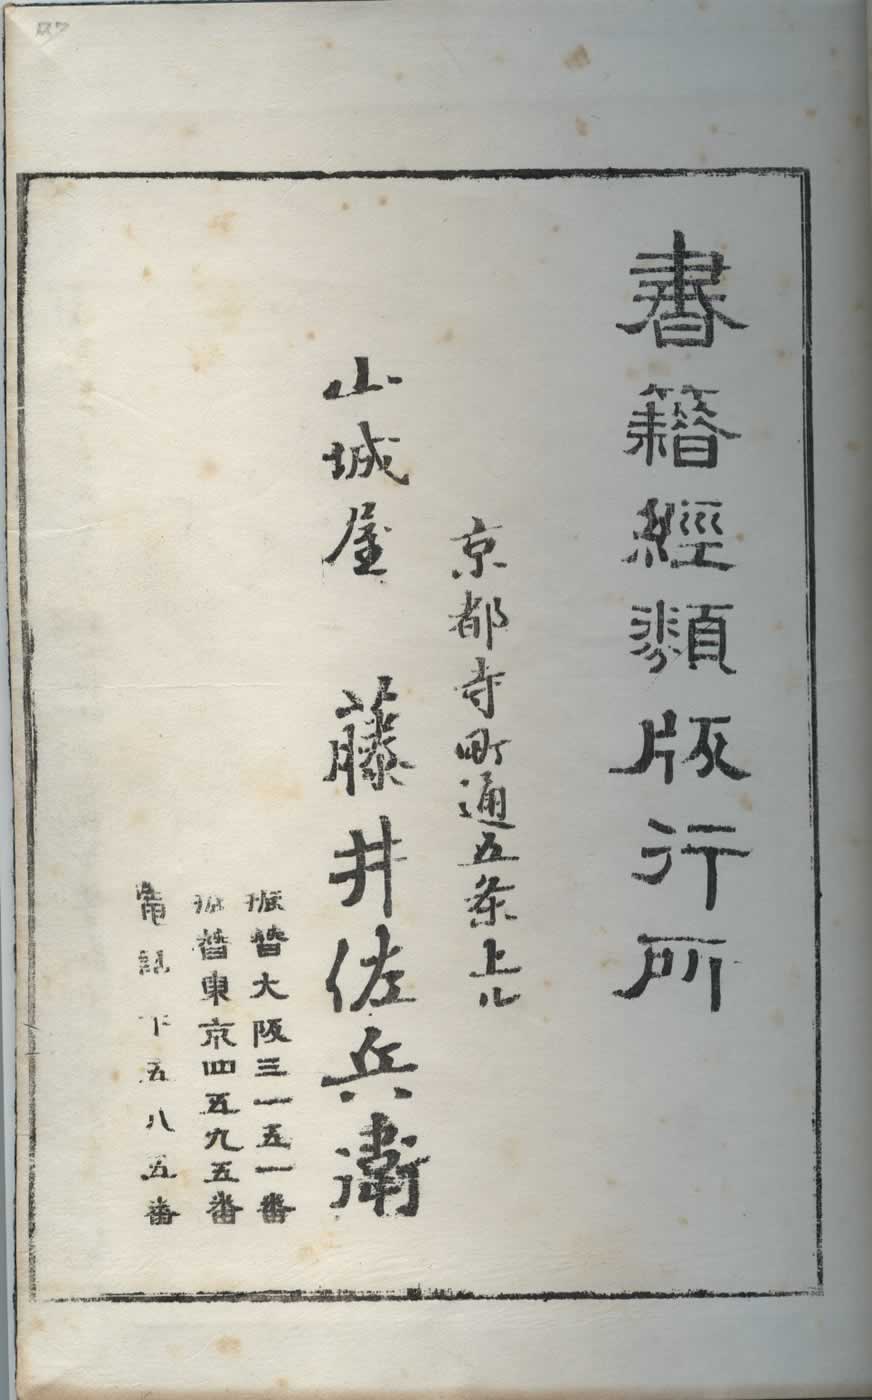 書籍經類版行所
京都寺町通五条上ル
山城屋 藤井佐兵衞
振替大阪三一五一番
振替東京四五九五番
電話下五八五番